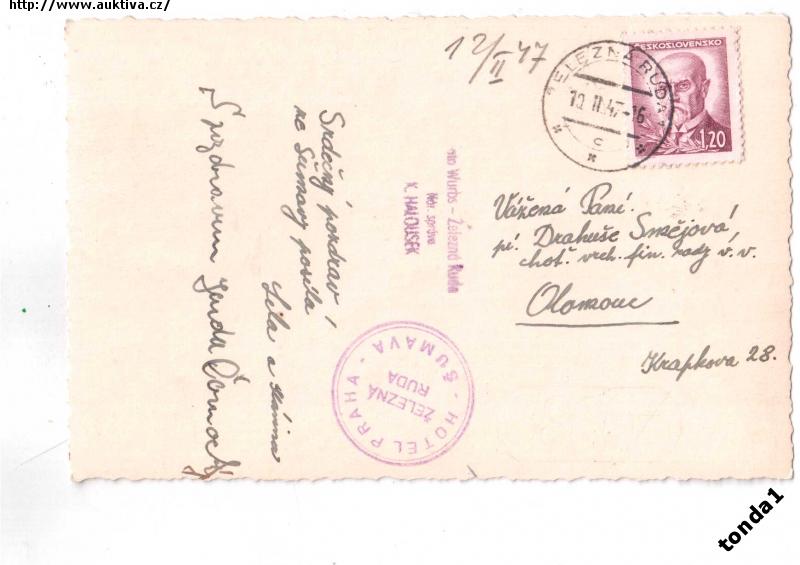 http://www.auktiva.cz/
12/II 47
ČESKOSLOVENSKO
1,20
ŽELEZNÁ RUDA
10.II.47-16
c
Srdečný pozdrav
ze Šumavy posílá
Lila a
foto Wurbs - Železná Ruda
Nár. správa
K. HALOUSEK
HOTEL PRAHA - ŠUMAVA -
ŽELEZNÁ
RUDA
Vážená Paní
pí. Drahuše Smějová,
choť. vrch. fin. rady v. v.
Olomouc
Krapkova 28.
tonda1